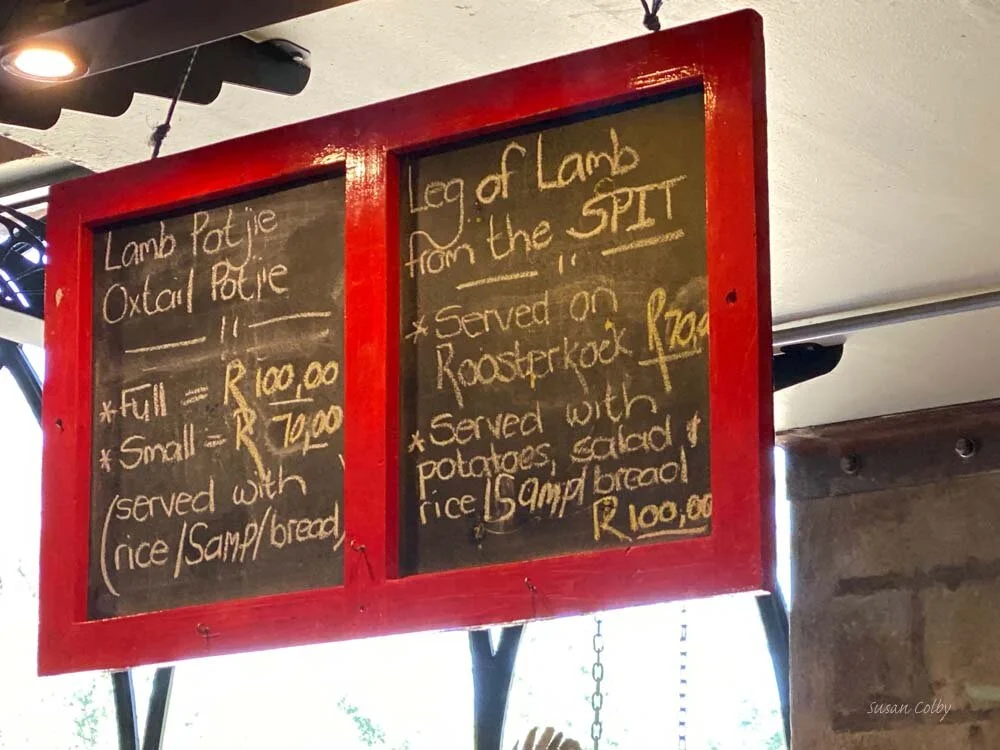 Lamb Potjie
Oxtail Potjie
"
*Full = R100,00
*Small = R 70,00
(served with
rice/Samp/bread)
Leg of Lamb
from the SPIT
"
*Served on
Roosterkoek R70,0
*Served with
potatoes, salad &
rice/Samp/bread
R100,00
Susan Colby